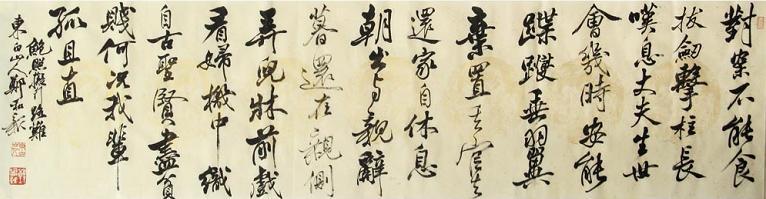 對案不能食
拔劍擊柱長
嘆息丈夫生世
會幾時安能
蹀躞垂羽翼
棄置官去
還家自休息
朝出与親辭
暮還在親側
弄兒牀前戲
看婦機中織
自古聖賢盡貧
賤何況我輩
孤且直
鮑照路難
東白山人鄭